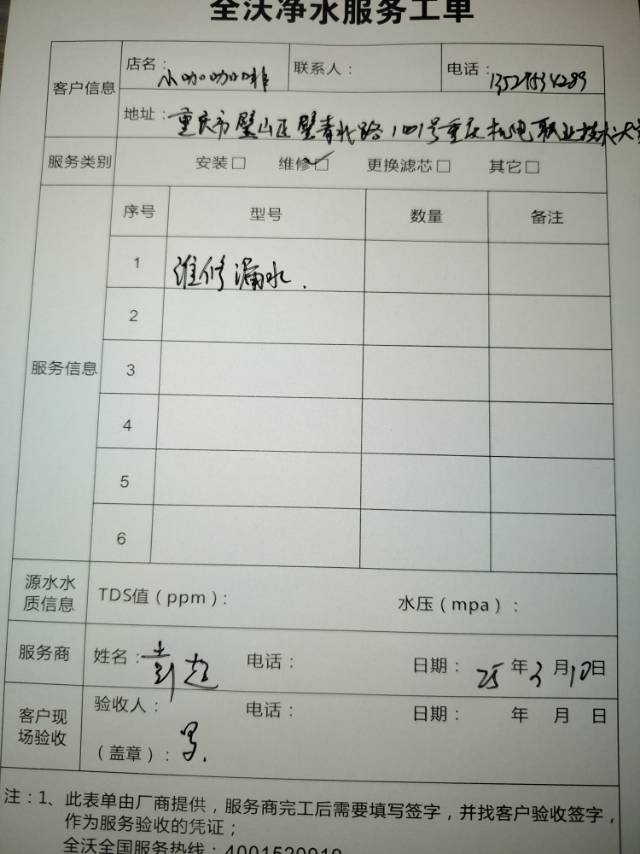 全沃净水服务工单
客户信息
店名：小咖咖啡
联系人：
电话：
地址：重庆市璧山区璧青北路1001号重庆机电职业技术大学
服务类别
安装□ 维修☑ 更换滤芯□ 其它□
服务信息
序号 型号 数量 备注
1 维修漏水.
2
3
4
5
6
源水水质信息
TDS值（ppm）：
水压（mpa）：
服务商
姓名：彭超
电话：
日期：25年3月10日
客户现场验收
验收人：
电话：
日期： 年 月 日
（盖章）：
注：1、此表单由厂商提供，服务商完工后需要填写签字，并找客户验收签字，
作为服务验收的凭证；
全沃全国服务热线：